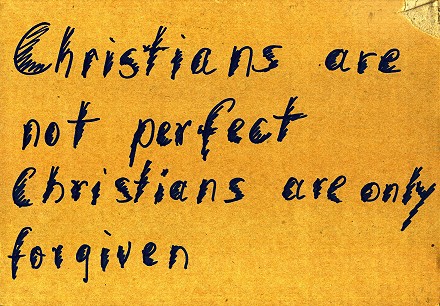 Christians are
not perfect
Christians are only
forgiven